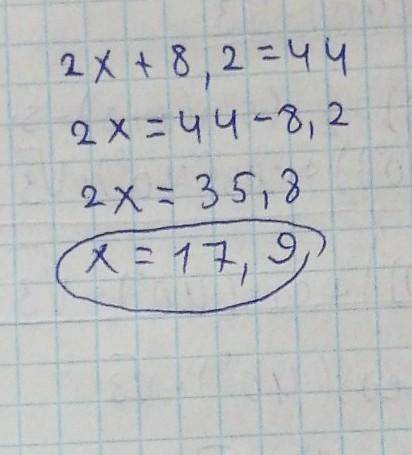 2x + 8,2 = 44
2x = 44 - 8,2
2x = 35,8
x = 17,9